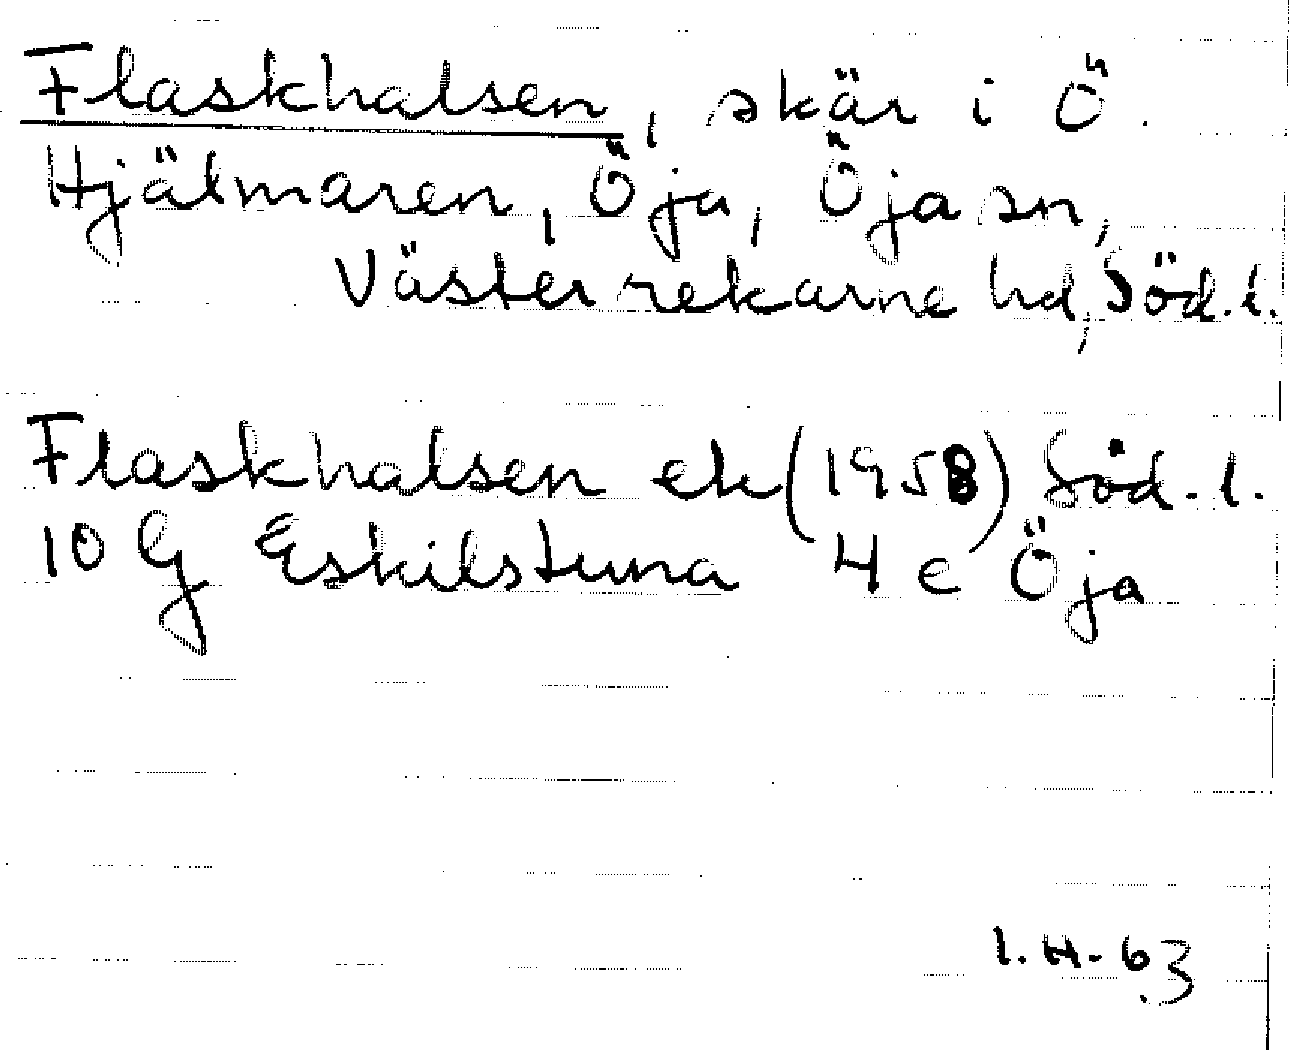 Flaskhalsen, skär i Ö.
Hjälmaren, Öja, Öja sn,
Västerrekarne hd, Söd.l.
Flaskhalsen ek (1958) Söd.l.
10 G Eskilstuna 4 e Öja
I.H-63